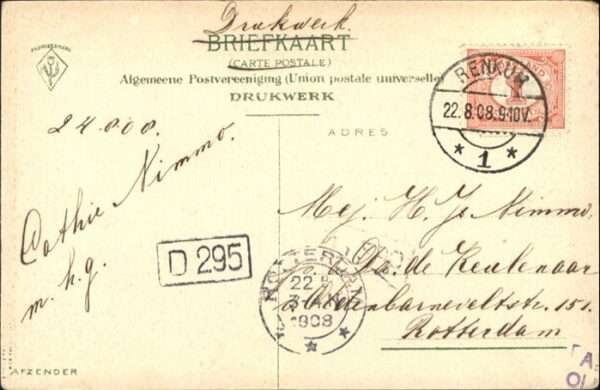 Drukwerk.
BRIEFKAART
(CARTE POSTALE)
Algemeene Postvereeniging (Union postale universelle)
DRUKWERK
RENKUM
22.8.08.9-10V.
* 1 *
ADRES
Cathie Nimmo.
m. h. g.
D 295
ROTTERDAM
22
1908
Mej. H. Js Nimmo,
p/a: de Keukenaar
Oldenbarneveltstr. 151.
Rotterdam
AFZENDER